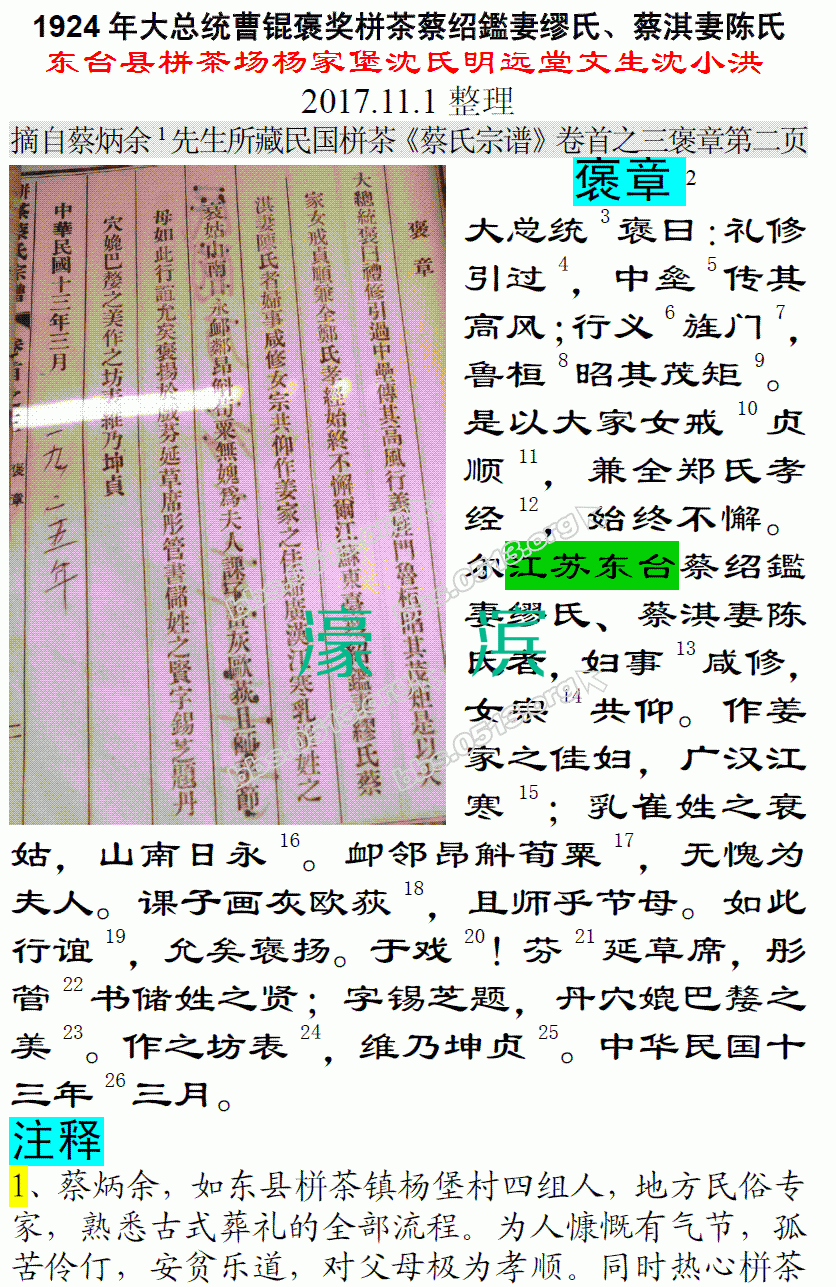 1924年大总统曹锟褒奖栟茶蔡绍鑑妻缪氏、蔡淇妻陈氏
东台县栟茶场杨家堡沈氏明远堂文生沈小洪
2017.11.1 整理
摘自蔡炳余1先生所藏民国栟茶《蔡氏宗谱》卷首之三褒章第二页
褒章
大總統褒曰禮修引過中壘傳其高風行義旌門魯桓昭其茂矩是以大
家女戒貞順兼全鄭氏孝經始終不懈爾江蘇東臺蔡紹鑑妻繆氏蔡
淇妻陳氏者婦事咸修女宗共仰作姜家之佳婦廣漢江寒乳崔姓之
衰姑山南日永卹鄰昂斛荀粟無媿爲夫人課子畫灰歐荻且師乎節
母如此行誼允矣褒揚於戲芬延草席彤管書儲姓之賢字錫芝題丹
穴媲巴嫠之美作之坊表維乃坤貞
中華民國十三年三月
一九二五年
栟茶蔡氏宗譜
卷首之三 褒章
二
褒章2
大总统3褒曰：礼修
引过4，中垒5传其
高风；行义6旌门7，
鲁桓8昭其茂矩9。
是以大家女戒10贞
顺11，兼全郑氏孝
经12，始终不懈。
尔江苏东台蔡绍鑑
妻缪氏、蔡淇妻陈
氏者，妇事13咸修，
女宗14共仰。作姜
家之佳妇，广汉江
寒15；乳崔姓之衰
姑，山南日永16。卹邻昂斛荀粟17，无愧为
夫人。课子画灰欧荻18，且师乎节母。如此
行谊19，允矣褒扬。于戏20！芬21延草席，彤
管22书储姓之贤；字锡芝题，丹穴媲巴嫠之
美23。作之坊表24，维乃坤贞25。中华民国十
三年26三月。
注释
1、蔡炳余，如东县栟茶镇杨堡村四组人，地方民俗专
家，熟悉古式葬礼的全部流程。为人慷慨有气节，孤
苦伶仃，安贫乐道，对父母极为孝顺。同时热心栟茶
濠 滨
bbs.0513.org
bbs.0513.org
bbs.0513.org
bbs.0513.org